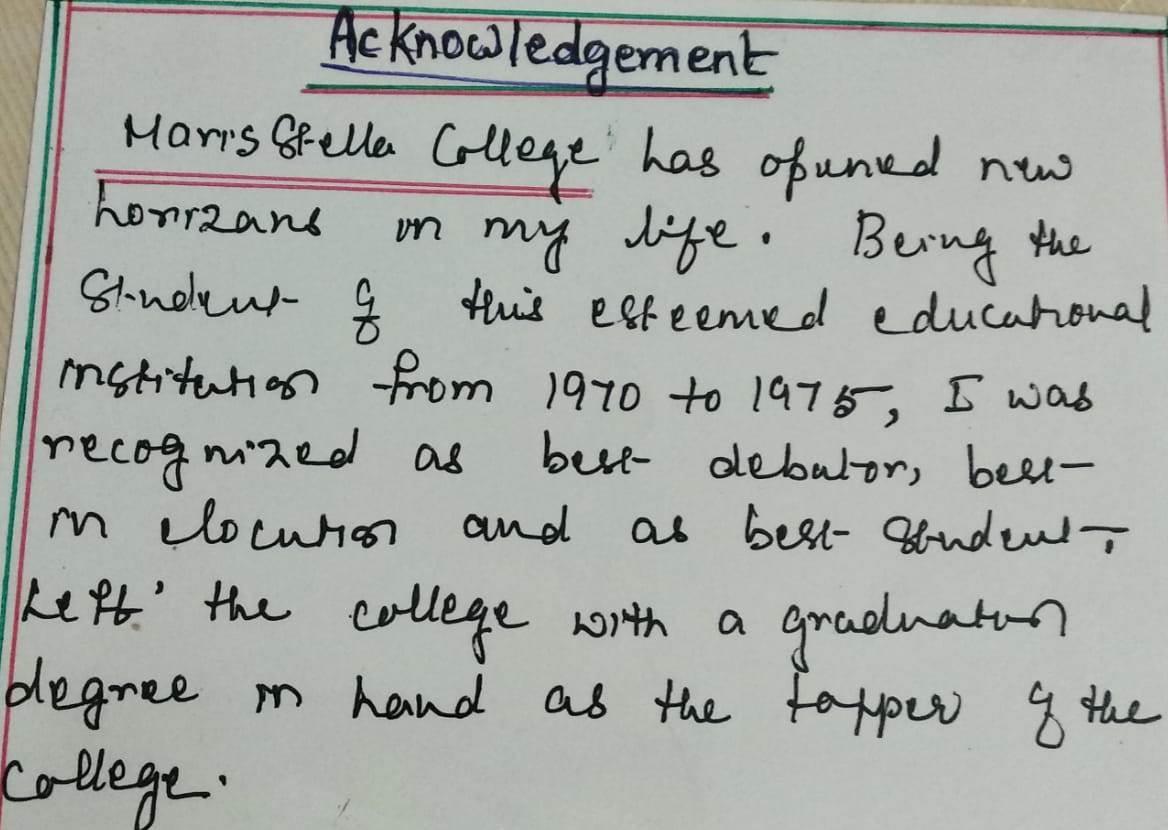 Acknowledgement
Maris Stella College has opened new
horizans in my life. Being the
Student of this esteemed educational
institution from 1970 to 1975, I was
recognized as best debator, best
in elocution and as best student.
Left the college with a graduation
degree in hand as the topper of the
college.